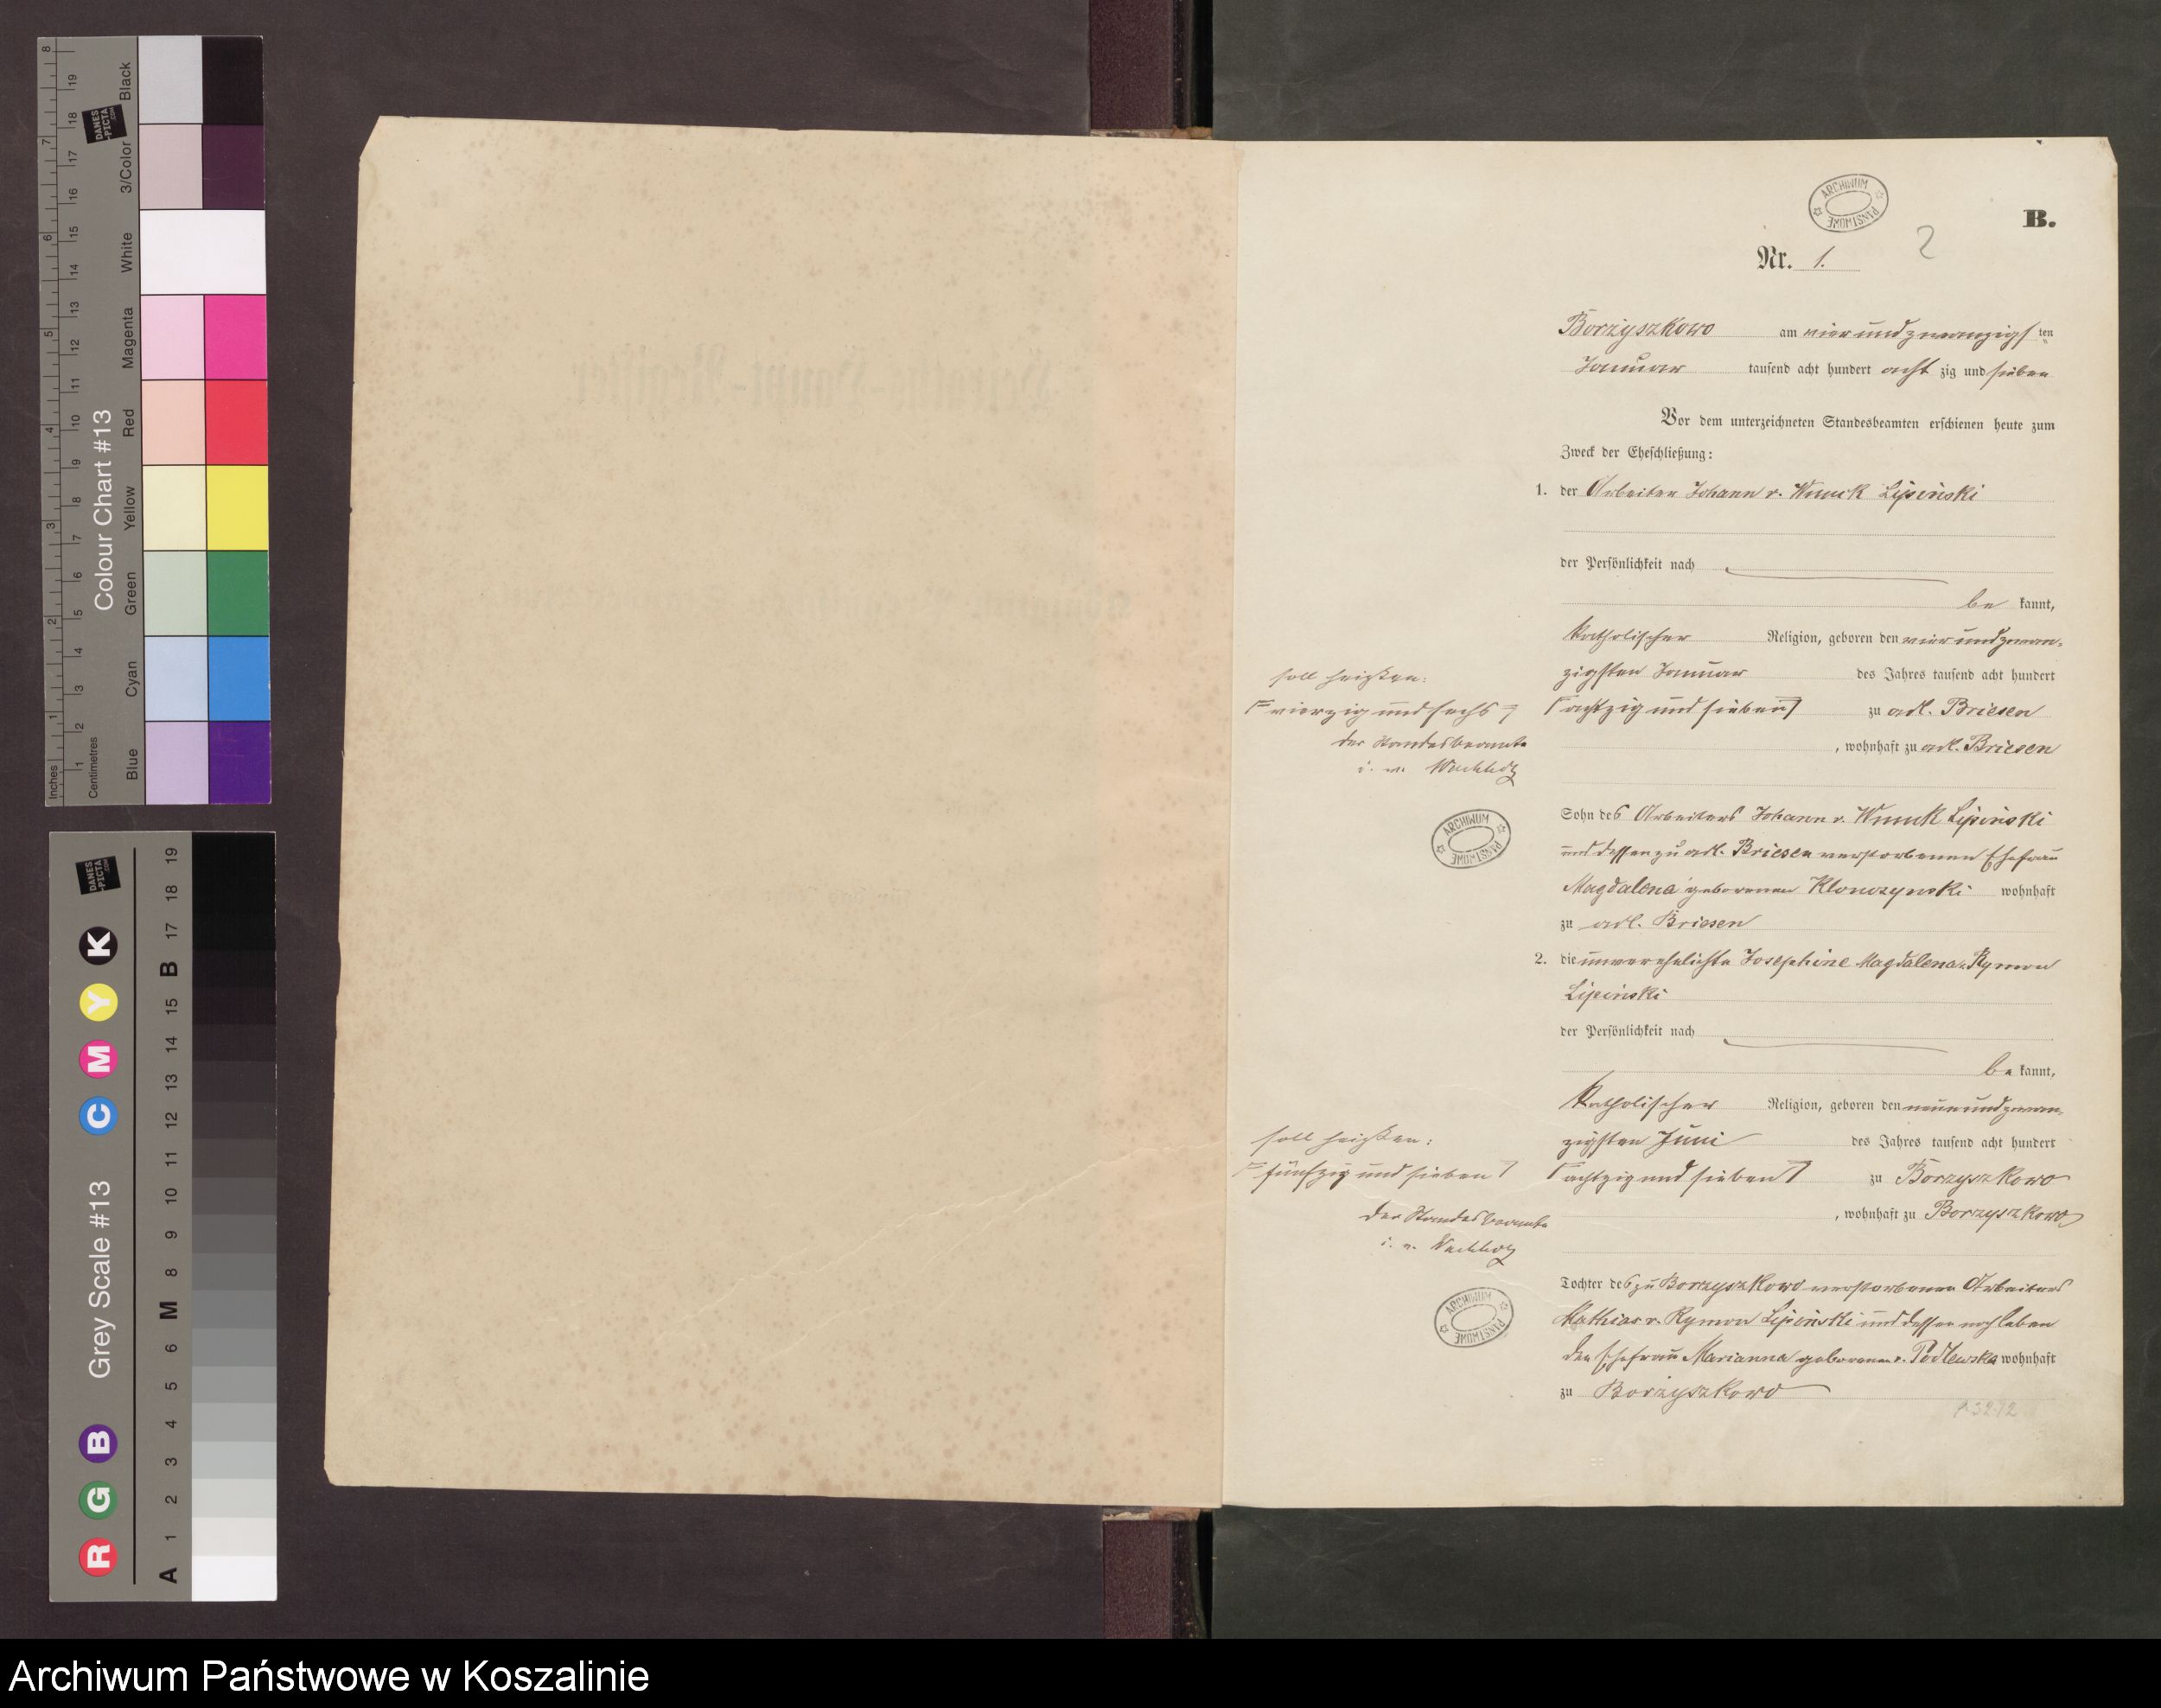 Colour Chart #13
Black
3/Color
White
Magenta
Red
Yellow
Green
Cyan
Blue
Inches
Centimetres
DANES-PICTA.COM
Grey Scale #13
R G B C M Y K
A 1 2 3 4 5 6 M 8 9 10 11 12 13 14 15 B 17 18 19
ARCHIWUM PAŃSTWOWE
B.
2
Nr. 1.
Borzyszkowo am vier und zwanzigsten
Januar tausend acht hundert acht zig und sieben
Vor dem unterzeichneten Standesbeamten erschienen heute zum
Zweck der Eheschließung:
1. der Arbeiter Johann v. Wnuck Lipinski
der Persönlichkeit nach
be kannt,
katholischer Religion, geboren den vier und zwan-
zigsten Januar des Jahres tausend acht hundert
soll heißen:
vierzig und sechs
achtzig und sieben zu adl. Briesen
der Standesbeamte
, wohnhaft zu adl. Briesen
i. v. Wachholz
Sohn des Arbeiters Johann v. Wnuck Lipinski
und dessen zu adl. Briesen verstorbenen Ehefrau
ARCHIWUM PAŃSTWOWE
Magdalena geborenen Klonczynski wohnhaft
zu adl. Briesen
2. die unverehelichte Josephine Magdalena v. Rymon
Lipinski
der Persönlichkeit nach
be kannt,
katholischer Religion, geboren den neun und zwan-
zigsten Juni des Jahres tausend acht hundert
soll heißen:
fünfzig und sieben
achtzig und sieben zu Borzyszkowo
der Standesbeamte
, wohnhaft zu Borzyszkowo
i. v. Wachholz
Tochter des zu Borzyszkowo verstorbenen Arbeiters
ARCHIWUM PAŃSTWOWE
Mathias v. Rymon Lipinski und dessen noch leben
den Ehefrau Marianna geborenen v. Podlewska wohnhaft
zu Borzyszkowo
Archiwum Państwowe w Koszalinie